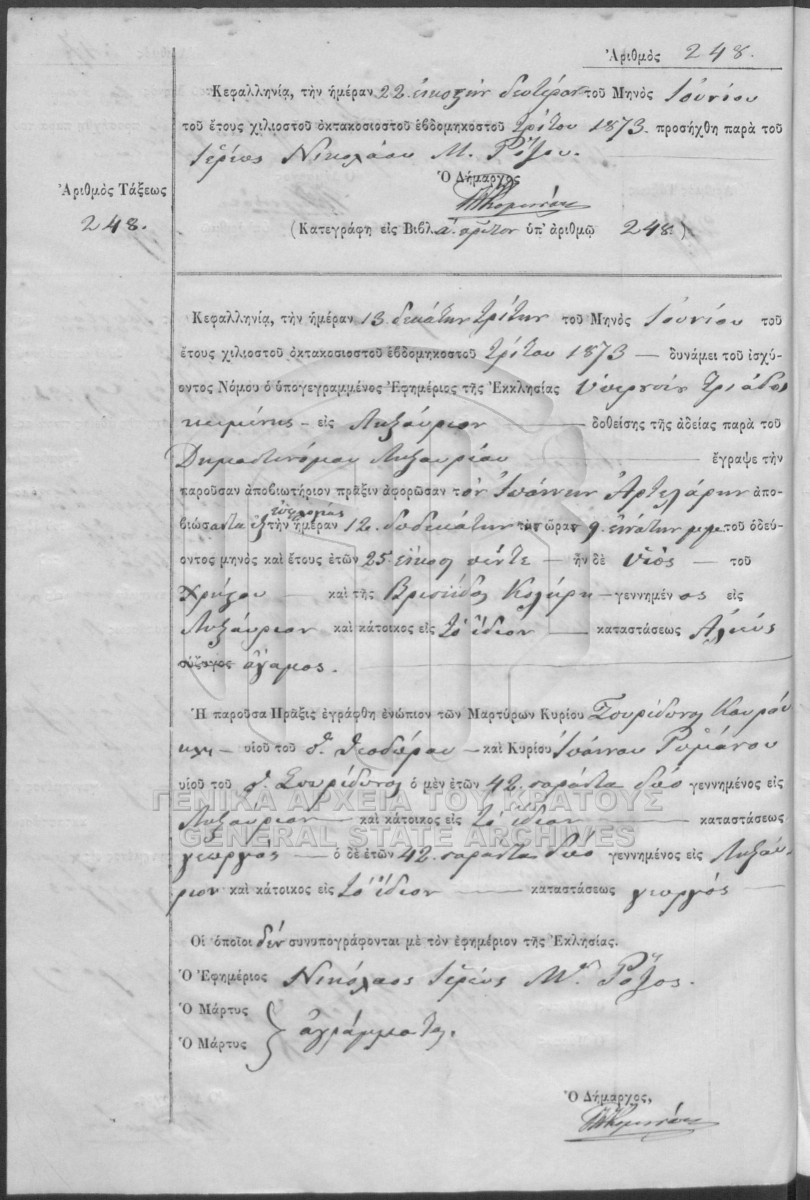 Ἀριθμὸς 248.
Κεφαλληνίᾳ, τὴν ἡμέραν 22 εἰκοστὴν δευτέραν τοῦ Μηνὸς Ἰουνίου
τοῦ ἔτους χιλιοστοῦ ὀκτακοσιοστοῦ ἑβδομηκοστοῦ τρίτου 1873 προσήχθη παρὰ τοῦ
Ἱερέως Νικολάου Μ. Ρόζου.
Ὁ Δήμαρχος
Ἀριθμὸς Τάξεως
248.
(Κατεγράφη εἰς Βιβλ. ὑπ' ἀριθμῷ 248)
Κεφαλληνίᾳ, τὴν ἡμέραν 13 δεκάτην τρίτην τοῦ Μηνὸς Ἰουνίου τοῦ
ἔτους χιλιοστοῦ ὀκτακοσιοστοῦ ἑβδομηκοστοῦ τρίτου 1873 — δυνάμει τοῦ ἰσχύ-
οντος Νόμου ὁ ὑπογεγραμμένος Ἐφημέριος τῆς Ἐκκλησίας Τριάδος
κειμένης — εἰς Ληξούριον — δοθείσης τῆς ἀδείας παρὰ τοῦ
Δημαστυνόμου Ληξουρίου — ἔγραψε τὴν
παροῦσαν ἀποβιωτήριον πρᾶξιν ἀφορῶσαν τὸν Ἰωάννην ἀπο-
βιώσαντα τὴν ἡμέραν 12 δωδεκάτην τὴν ὥραν 9 ἐννάτην τοῦ ὁδεύ-
οντος μηνὸς καὶ ἔτους ἐτῶν 25 εἴκοσι πέντε — ἦν δὲ υἱὸς — τοῦ
— καὶ τῆς — γεννημένος εἰς
Ληξούριον καὶ κάτοικος εἰς τὸ ἴδιον — καταστάσεως
σύζυγος ἄγαμος.
Ἡ παροῦσα Πρᾶξις ἐγράφθη ἐνώπιον τῶν Μαρτύρων Κυρίου Σπυρίδωνος
— υἱοῦ τοῦ Θεοδώρου — καὶ Κυρίου Ἰωάννου Ρωμάνου
υἱοῦ τοῦ Σπυρίδωνος ὁ μὲν ἐτῶν 42 σαράντα δύο γεννημένος εἰς
Ληξούριον — καὶ κάτοικος εἰς τὸ ἴδιον — καταστάσεως
γεωργὸς — ὁ δὲ ἐτῶν 42 σαράντα δύο γεννημένος εἰς Ληξού-
ριον καὶ κάτοικος εἰς τὸ ἴδιον — καταστάσεως γεωργός —
Οἱ ὁποῖοι δὲν συνυπογράφονται μὲ τὸν ἐφημέριον τῆς Ἐκλησίας.
Ὁ Ἐφημέριος Νικόλαος Ἱερεὺς Μ. Ρόζος.
Ὁ Μάρτυς
Ὁ Μάρτυς
ἀγράμματοι.
Ὁ Δήμαρχος,
ΓΕΝΙΚΑ ΑΡΧΕΙΑ ΤΟΥ ΚΡΑΤΟΥΣ
GENERAL STATE ARCHIVES